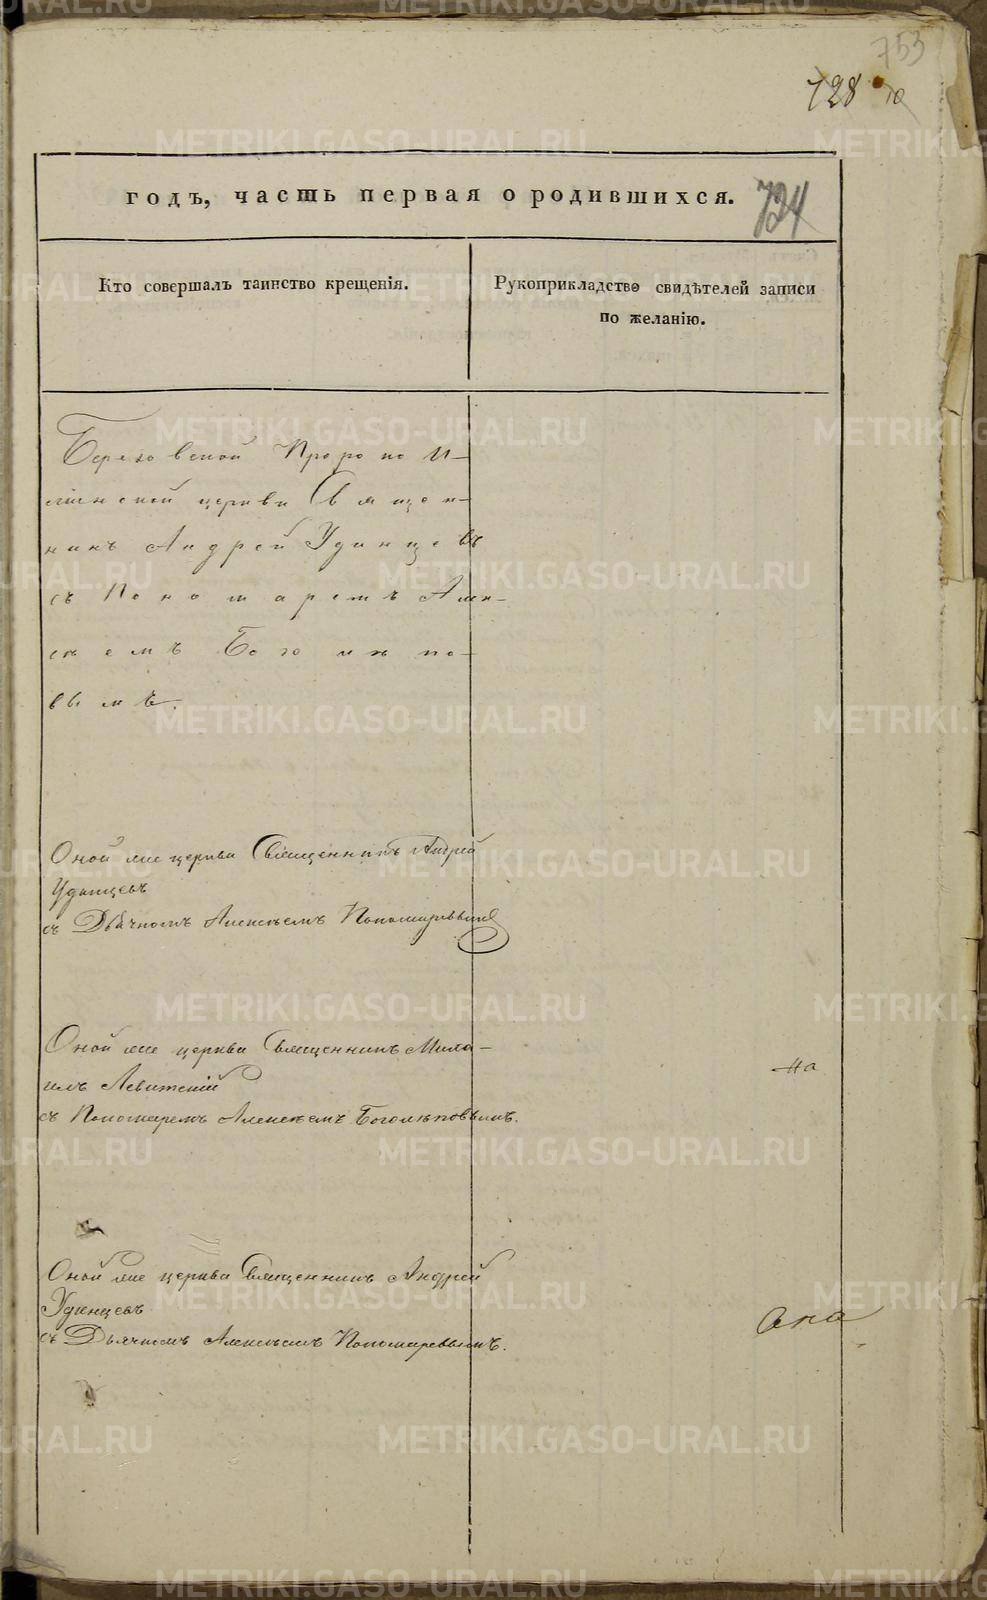 753
728
годъ, часть первая о родившихся.
724
Кто совершалъ таинство крещенія.
Рукоприкладство свидѣтелей записи
по желанію.
Березовской Пророко И-
лiинской церкви Священ-
никъ Андрей Удинцевъ
съ Пономаремъ Алек-
сѣемъ Боголѣпо-
вымъ.
Оной же церкви Священникъ Андрей
Удинцевъ
съ Дьячкомъ Алексѣемъ Пономаревымъ
Оной же церкви Священникъ Миха-
илъ Левитскій
съ Пономаремъ Алексѣемъ Боголѣповымъ.
на
Оной же церкви Священникъ Андрей
Удинцевъ
съ Дьячкомъ Алексѣемъ Пономаревымъ.
METRIKI.GASO-URAL.RU